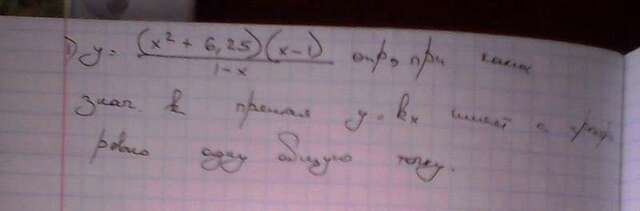 1) y = (x² + 6,25)(x-1) / 1-x опр, при каких
знач. k прямая y = kx имеет с граф
ровно одну общую точку.